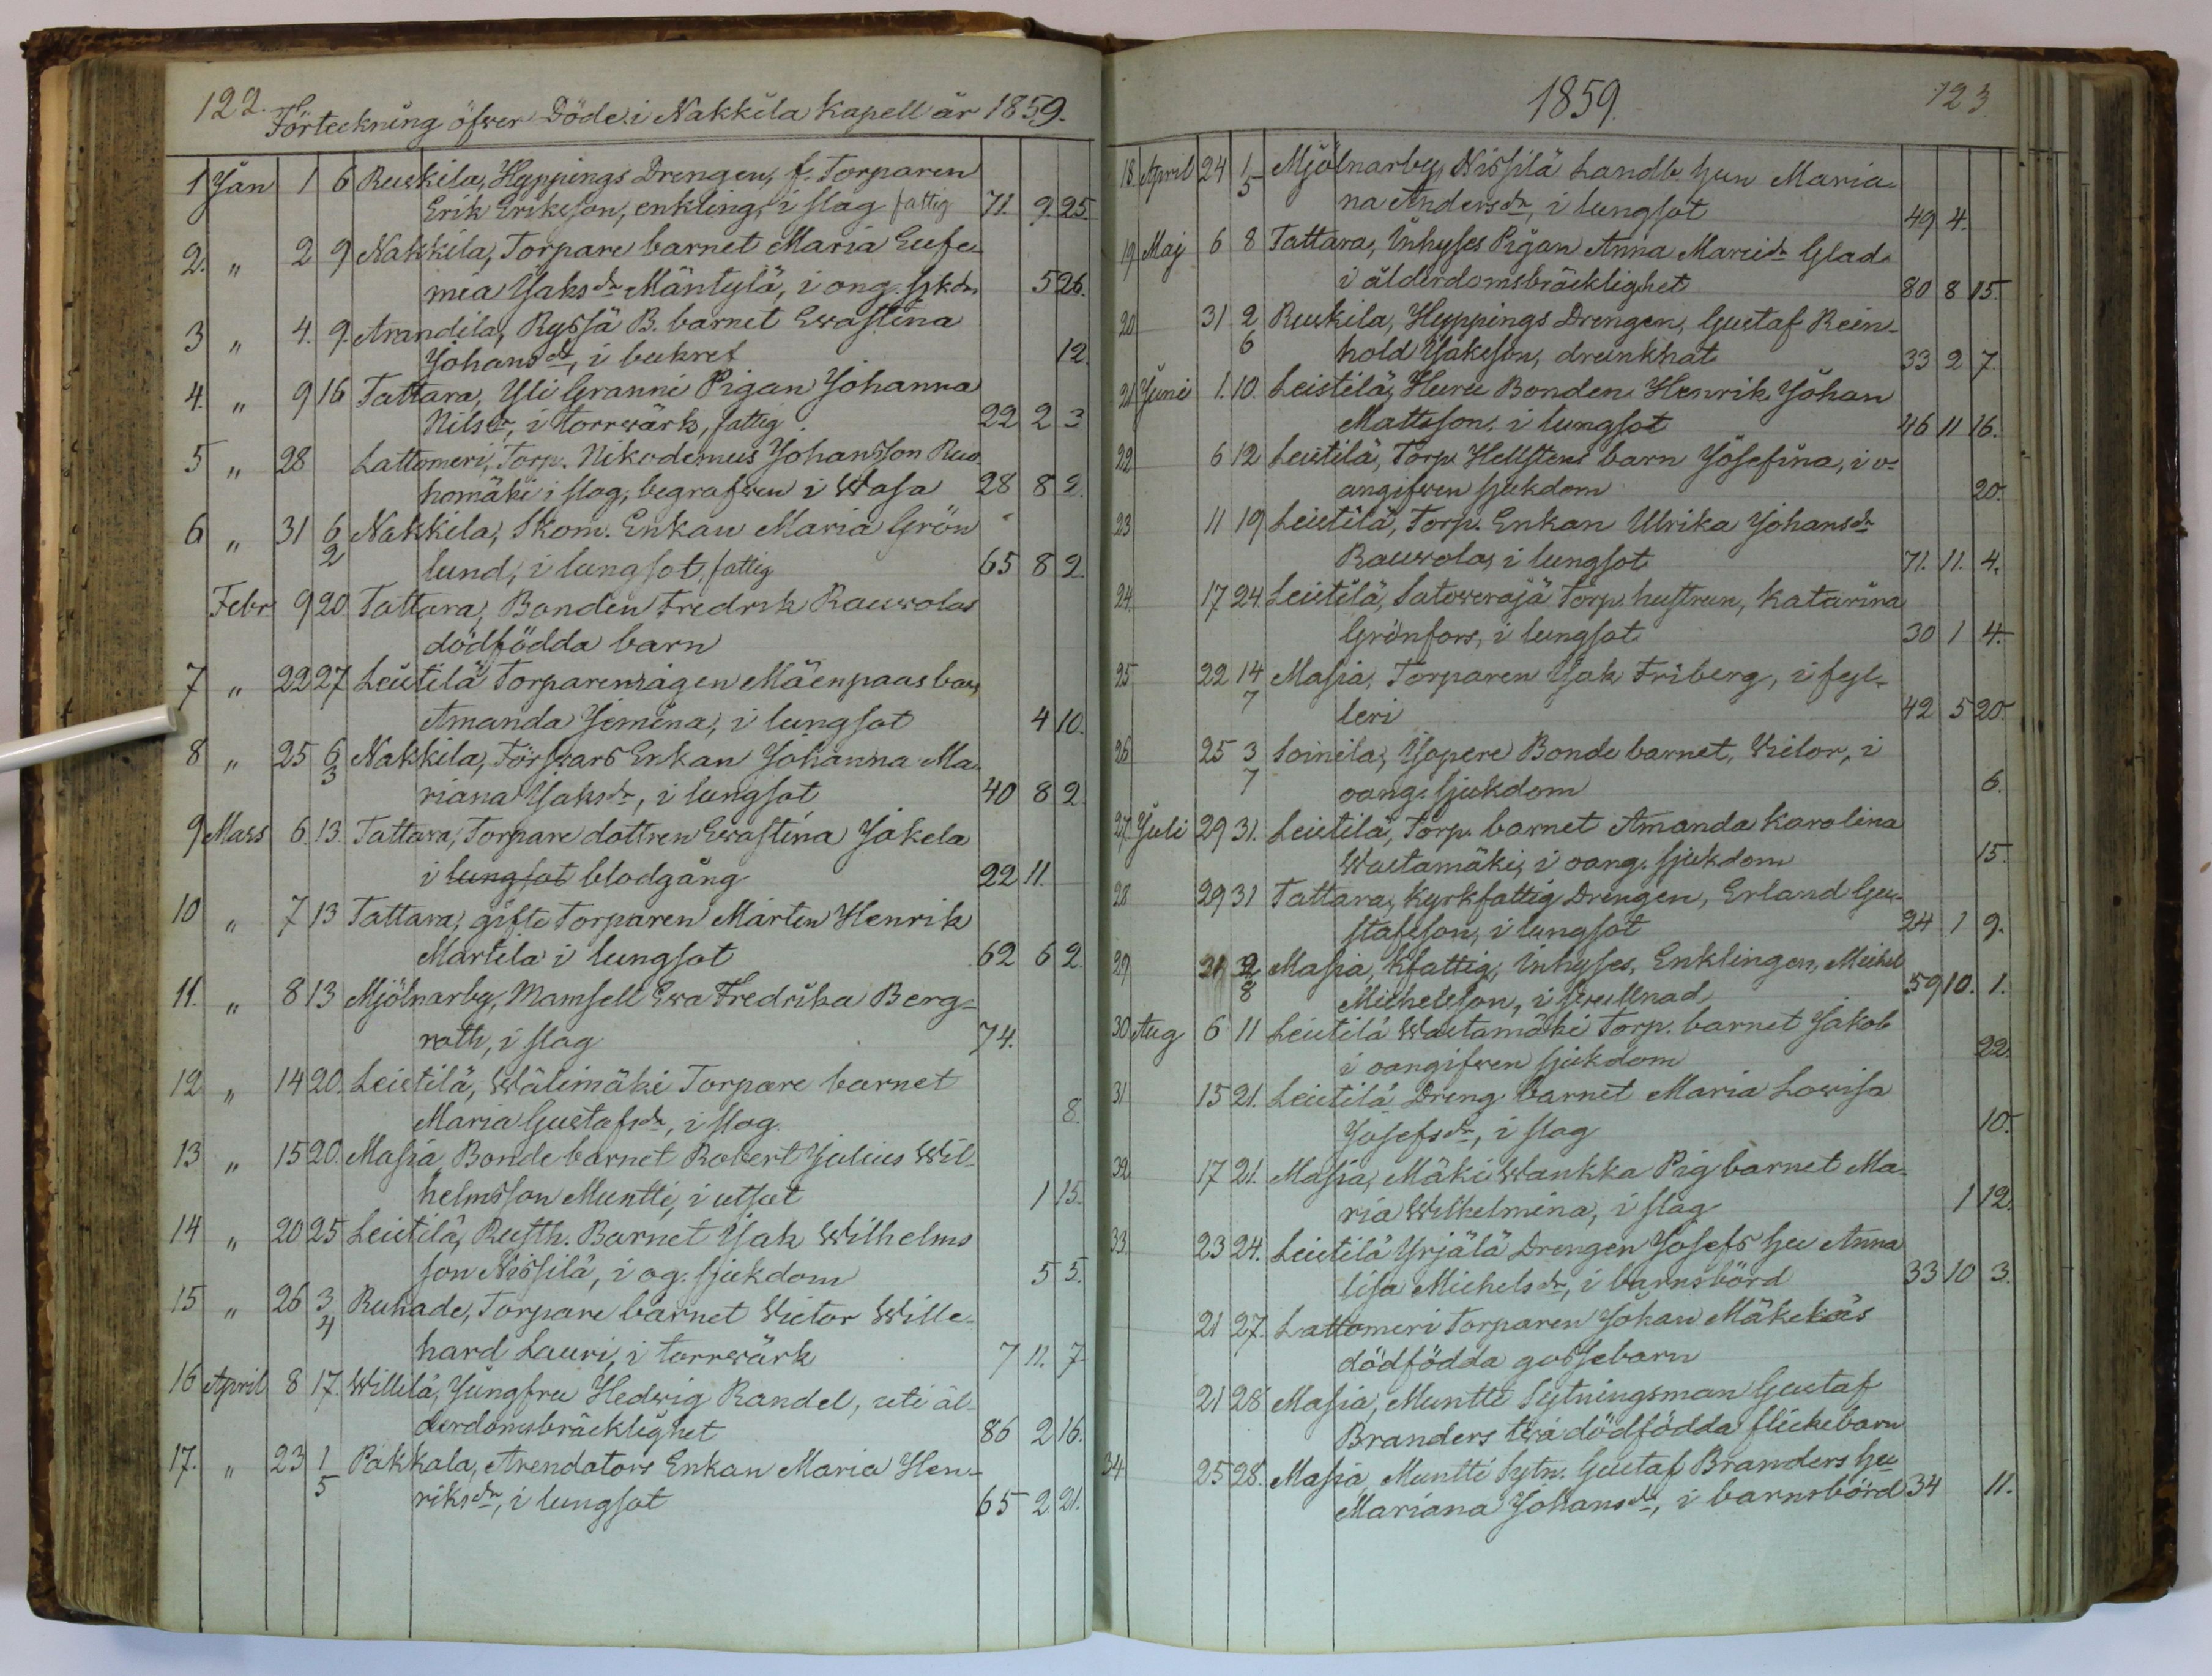 122.
Förteckning öfver Döde i Nakkila Kapell år 1859.
1 Jan 1 6 Ruskila, Hyppings Drengen, f. Torparen
Erik Eriksson, enkling, i slag fattig 71. 9. 25.
2. " 2 9 Nakkila, Torpare barnet Maria Eufe-
mia Jaksdr Mäntylä, i ong. sjkd. 5 26.
3 " 4. 9. Arandila, Ryssä B. barnet Ewastina
Johansdr, i bukref 12.
4. " 9 16 Tattara, Yli Granni Pigan Johanna
Nilsdr, i torrwärk, fattig. 22 2 3
5 " 28 Lattomeri, Torp. Nikodemus Johansson Ruo
homäki i slag, begrafwen i Wasa 28 8 2.
6 " 31 6/2 Nakkila, Skom. Enkan Maria Grön
lund, i lungsot, fattig 65 8 2.
Febr 9 20 Tattara, Bonden Fredrik Rauwolas
dödfödda barn
7 " 22 27 Leistilä Torparen Mäenpaas barn
Amanda Jemina, i lungsot 4 10.
8 " 25 6/3 Nakkila, Förswars Enkan Johanna Ma
riana Jaksdr, i lungsot 40 8 2.
9 Mars 6. 13. Tattara, Torpare dottren Ewastina Jakela
i lungsot blodgång 22 11.
10 " 7 13 Tattara, gifte Torparen Mårten Henrik
Martila i lungsot 62 6 2.
11. " 8 13 Mjölnarby, Mamsell Ewa Fredrika Berg-
roth, i slag 74.
12 " 14 20. Leistilä, Wälimäki Torpare barnet
Maria Gustafsdr, i slag. 8.
13 " 15 20. Masia Bonde barnet Robert Julius Wil-
helmsson Muntti, i utsot 1 15.
14 " 20 25 Leistilä, Rusth. Barnet Isak Wilhelms
son Nissilä, i og. sjukdom 5 5.
15 " 26 3/4 Ruhade, Torpare barnet Victor Wille-
hard Lauri, i torrwärk 7 11. 7
16 April 8 17. Willilä, Jungfru Hedwig Randel, uti ål-
derdomsbräcklighet 86 2 16.
17. " 23 1/5 Pakkala, Arendators Enkan Maria Hen-
riksdr, i lungsot 65 2 21.
1859.
123.
18. April 24 1/5 Mjölnarby, Nissilä Landb. hun Maria
na Andersdr, i lungsot 49 4.
19 Maj 6 8 Tattara, Inhyses Pigan Anna Mariedr Glad
i ålderdomsbräcklighet 80 8 15.
20 31 2/6 Ruskila, Hyppings Drengen, Gustaf Rein-
hold Jaksson, drunknat 33 2 7.
21 Juni 1. 10. Leistilä, Huru Bonden Henrik Johan
Mattsson, i lungsot 46 11 16.
22 6 12 Leistilä, Torp. Hellstens barn Josefina, i o-
angifwen sjukdom 20.
23 11 19 Leistilä, Torp. Enkan Ulrika Johansdr
Rauwola, i lungsot 71. 11. 4.
24. 17 24. Leistilä, Satowraja Torp. hustrun, Katarina
Grönfors, i lungsot 30 1 4.
25 22 14/7 Masia, Torparen Isak Friberg, i fyl-
leri 42 5 20.
26 25 3/7 Soinila, Yopere Bonde barnet, Victor, i
oang. sjukdom 6.
27. Juli 29 31. Leistilä, Torp. barnet Amanda Karolina
Wastamäki, i oang. sjukdom 15.
28 29 31 Tattara, Kyrkfattig Drengen, Erland Gu-
stafsson, i lungsot 24 1 9.
29 31 2/8 Masia, Kfattig, Inhyses, Enklingen, Michel
Michelsson, i swullnad 59 10. 1.
30 Aug 6 11 Leistilä Wastamäki Torp. barnet Jakob
i oangifwen sjukdom 22.
31 15 21. Leistilä Dreng barnet Maria Lowisa
Josefsdr, i slag 10.
32 17 21. Masia, Mäki Wankka Pig barnet Ma-
ria Wilhelmina, i slag 1 12.
33. 23 24. Leistilä Yrjälä Drengen Josefs hu Anna
lisa Michelsdr, i barnsbörd 33 10 3.
21 27. Lattomeri Torparen Johan Mäkeläs
dödfödda gossebarn
21 28 Masia, Muntti Sytningsman Gustaf
Branders twå dödfödda flickebarn
34 25 28. Masia Muntti Sytn. Gustaf Branders hu
Mariana Johansdr, i barnsbörd 34 11.